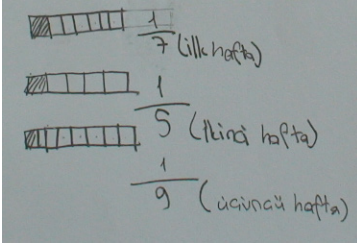 1/7 (ilk hafta)
1/5 (ikinci hafta)
1/9 (üçüncü hafta)